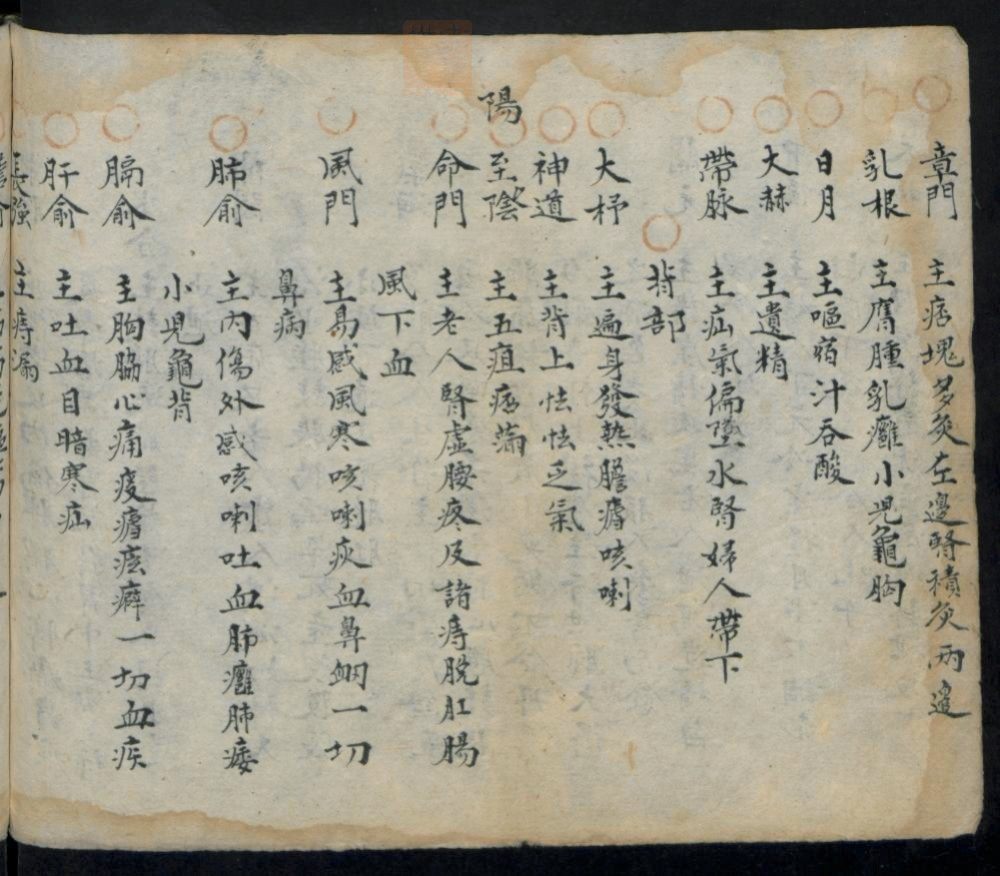 章門　主痞塊多灸左邊腎積灸兩邊
乳根　主膺腫乳癰小兒龜胸
日月　主嘔宿汁吞酸
大赫　主遺精
帶脉　主疝氣偏墜水腎婦人帶下
背部
大杼　主遍身發熱膽瘧咳嗽
神道　主背上怯怯乏氣
至陽　主五疸痞滿
命門　主老人腎虛腰疼及諸痔脫肛腸
風下血
風門　主易感風寒咳嗽痰血鼻衂一切
鼻病
肺俞　主內傷外感咳嗽吐血肺癰肺痿
小兒龜背
膈俞　主胸脇心痛痰瘧痃癖一切血疾
肝俞　主吐血目暗寒疝
長強　主痔漏